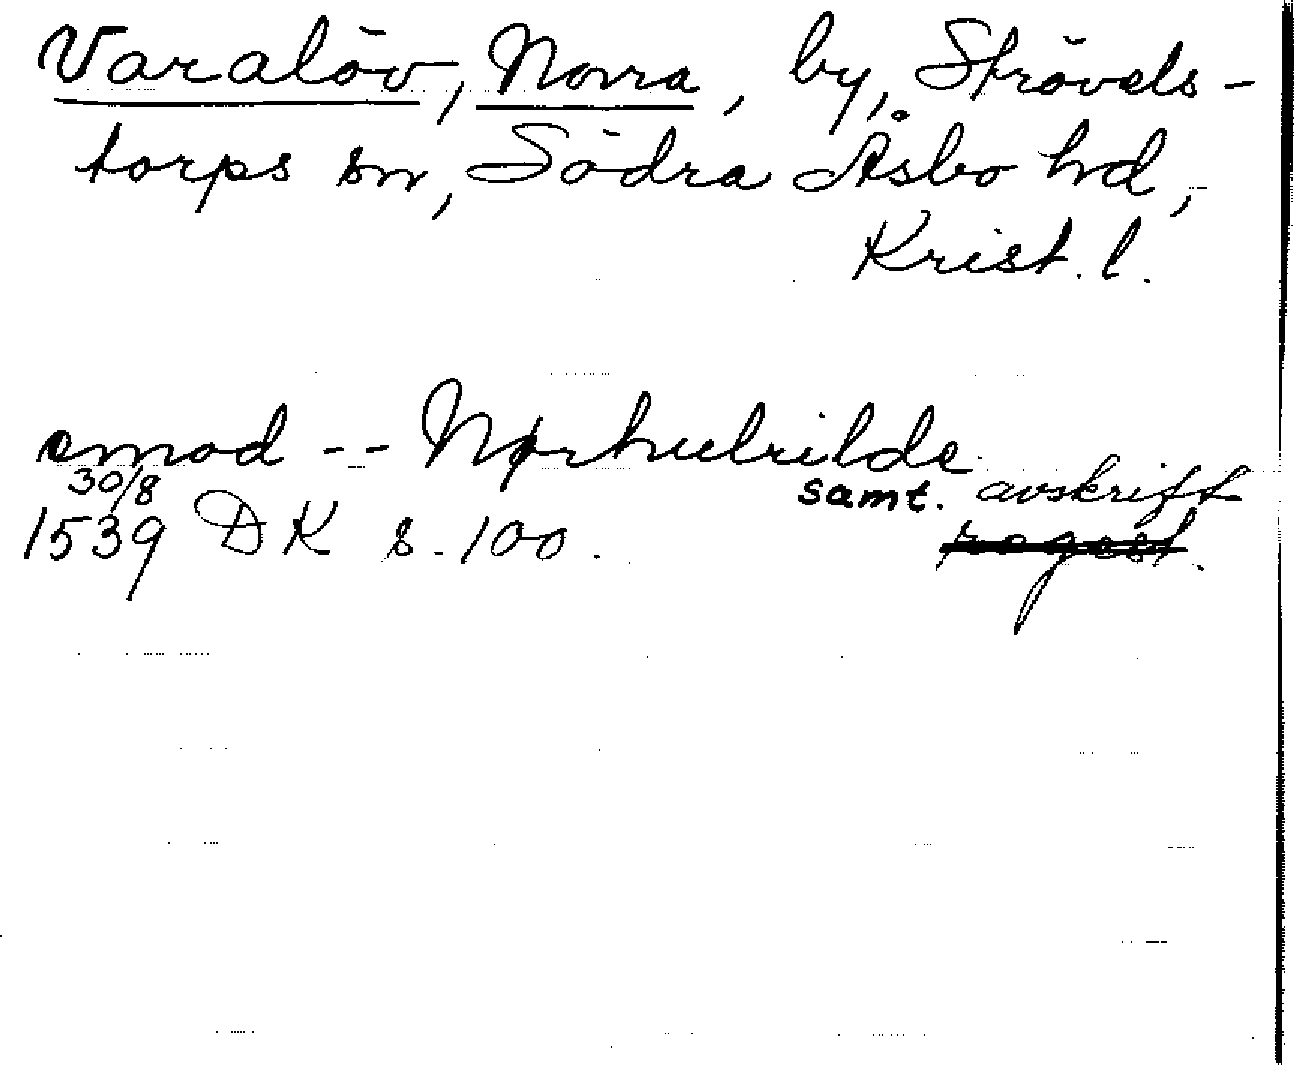 Varalöv, Norra, by, Strövels-
torps sn, Södra Åsbo hd,
Krist. l.
emod -- Nørhuelrilde
30/8 samt. avskrift
1539 DK s. 100. regest.